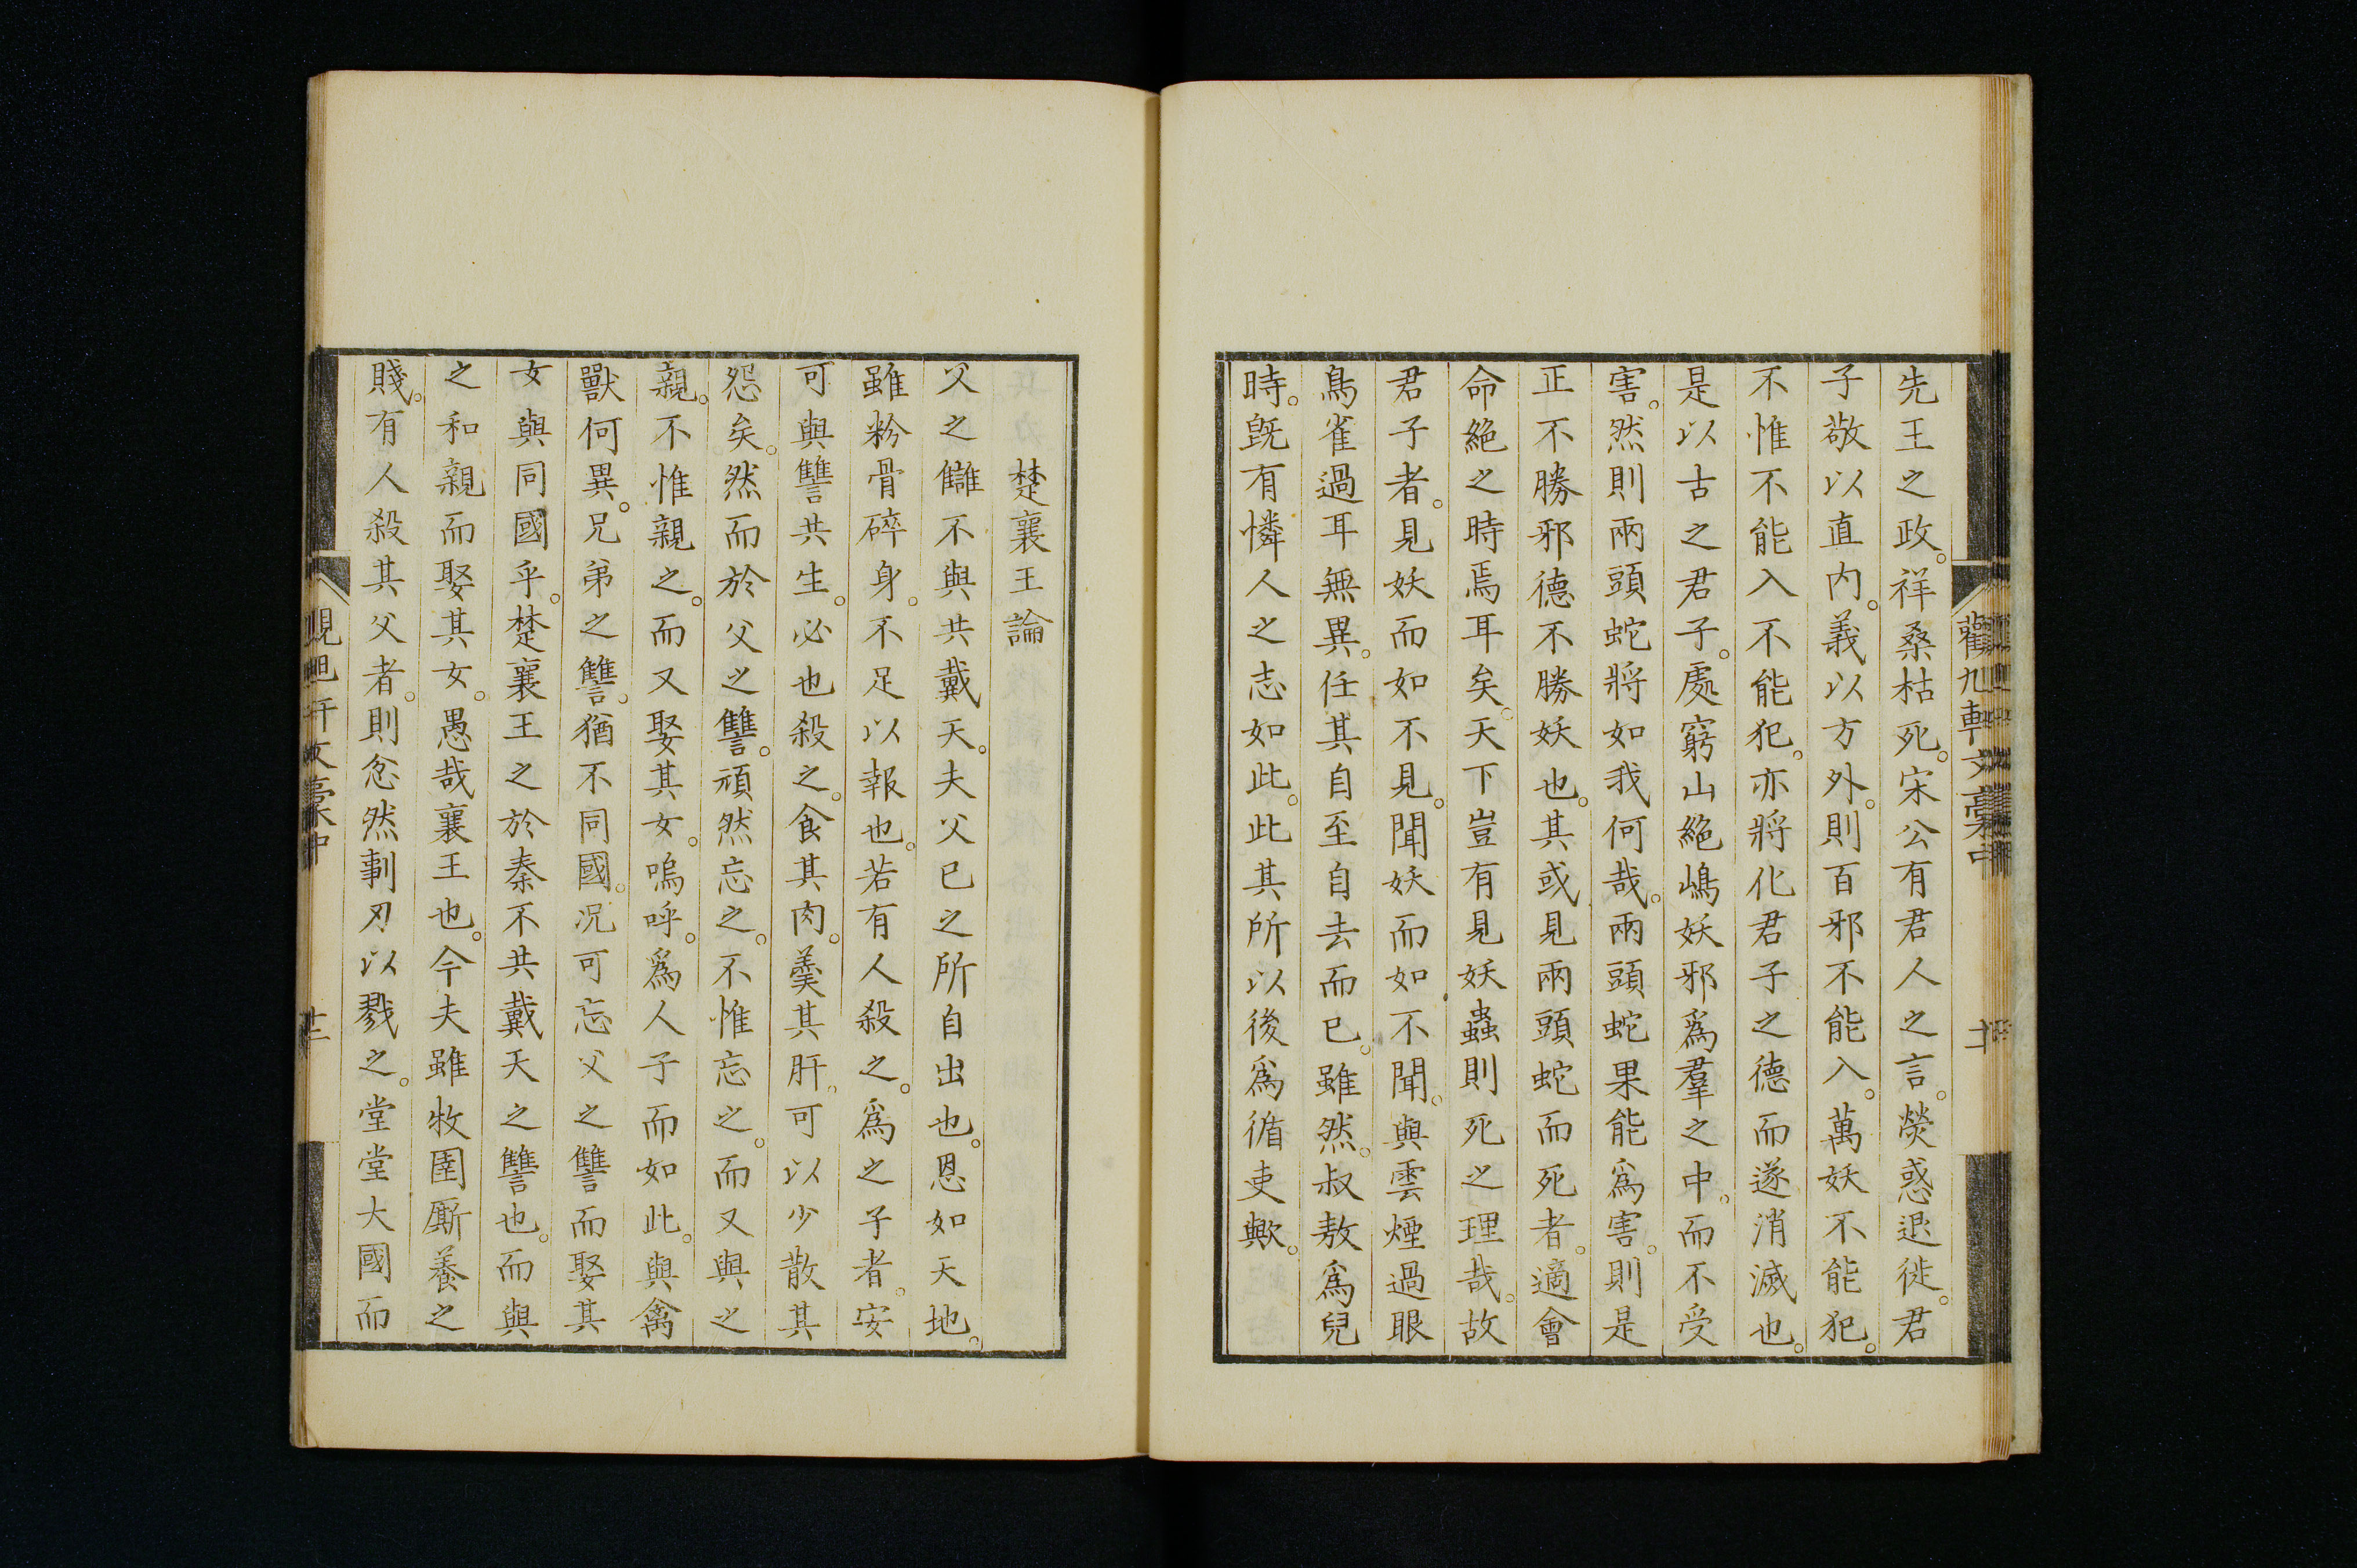 先王之政。祥桑枯死。宋公有君人之言。熒惑退徙。君
子敬以直內。義以方外。則百邪不能入。萬妖不能犯。
不惟不能入不能犯。亦將化君子之德而遂消滅也。
是以古之君子。處窮山絕嶋妖邪爲羣之中。而不受
害。然則兩頭蛇將如我何哉。兩頭蛇果能爲害。則是
正不勝邪德不勝妖也。其或見兩頭蛇而死者。適會
命絕之時焉耳矣。天下豈有見妖蟲則死之理哉。故
君子者。見妖而如不見。聞妖而如不聞。與雲煙過眼
鳥雀過耳無異。任其自至自去而已。雖然。叔敖爲兒
時。既有憐人之志如此。此其所以後爲循吏歟。
楚襄王論
父之讎不與共戴天。夫父已之所自出也。恩如天地。
雖粉骨碎身。不足以報也。若有人殺之。爲之子者。安
可與讐共生。必也殺之。食其肉。羹其肝。可以少散其
怨矣。然而於父之讐。頑然忘之。不惟忘之。而又與之
親。不惟親之。而又娶其女。嗚呼。爲人子而如此。與禽
獸何異。兄弟之讐。猶不同國。況可忘父之讐而娶其
女與同國乎。楚襄王之於秦不共戴天之讐也。而與
之和親而娶其女。愚哉襄王也。今夫雖牧圉厮養之
賤。有人殺其父者。則忿然剚刃以戮之。堂堂大國而